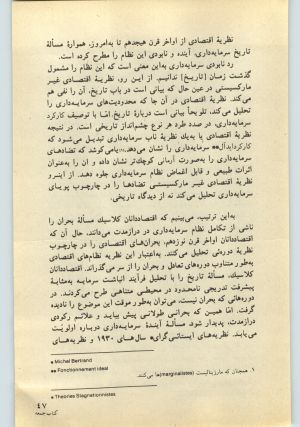 نظریهٔ اقتصادی از اواخر قرن هیجدهم تا به‌امروز، همواره مسألهٔ
تاریخ سرمایه‌داری، آینده و نابودی این نظام را مطرح کرده است.
رد نابودی سرمایه‌داری به‌این معنی است که این نظام را مشمول
گذشت زمان [تاریخ] ندانیم. از این رو، نظریهٔ اقتصادی غیر
مارکسیستی در عین حال که بیانی است در باب تاریخ، آن را نفی هم
می‌کند. نظریهٔ اقتصادی در آن جا که محدودیت‌های سرمایه‌داری را
تحلیل می‌کند، تلویحاً بیانی است دربارهٔ تاریخ اما با توصیف کارکرد
سرمایه‌داری، در صدد طرد هر نوع چشم‌انداز تاریخی است. در نتیجه
نظریهٔ اقتصادی با به‌یک نظریهٔ ناب سرمایه‌داری تبدیل می‌شود که
کارکرد ایدآل** سرمایه‌داری را نشان می‌دهد، یا می‌کوشد که تضادهای
سرمایه‌داری را به‌صورت آرمانی کوچک‌تر نشان داده و آن را به‌عنوان
اثرات طبیعی و قابل اغماض نظام سرمایه‌داری جلوه دهد. از اینرو
نظریهٔ اقتصادی غیر مارکسیستی تضادها را در چارچوب پویای
سرمایه‌داری تحلیل می‌کند نه از دیدگاه تاریخی.
به این ترتیب، می‌بینیم که اقتصاددانان کلاسیک مسألهٔ بحران را
ناشی از تکامل نظام سرمایه‌داری در درازمدت می‌دانند، حال آن که
اقتصاددانان اواخر قرن نوزدهم، بحران‌های اقتصادی را در چارچوب
نظریهٔ دوره‌ئی تحلیل می‌کنند. به‌اعتبار این نظریه نظام‌های اقتصادی
به‌طور متناوب دوره‌های تعادل و بحران را از سر می‌گذراند. اقتصاددانان
کلاسیک، مسألهٔ تاریخ را با تحلیل فرآیند انباشت سرمایه به‌مثابهٔ
پیشرفت تدریجی نامحدود در محیطی متناهی طرح می‌کردند. در
دوره‌هائی که بحران نیست، می‌توان به‌طور موقت این موضوع را نادیده
گرفت. اما همین که بحرانی طولانی پیش بیاید و علائم رکودی
درازمدت، پدیدار شود، مسألهٔ آیندهٔ سرمایه‌داری دوباره اولویت
می‌یابد. نظریه‌های ایستائی‌گرای* سال‌های ۱۹۳۰ و نظریه‌های
* Michel Bertrand
** Fonctionnement ideal
۱. همچنان که مارژینالیست (marginalistes)ها می‌کنند.
* Theories Stagnationnistes
۴۷
کتاب جمعه